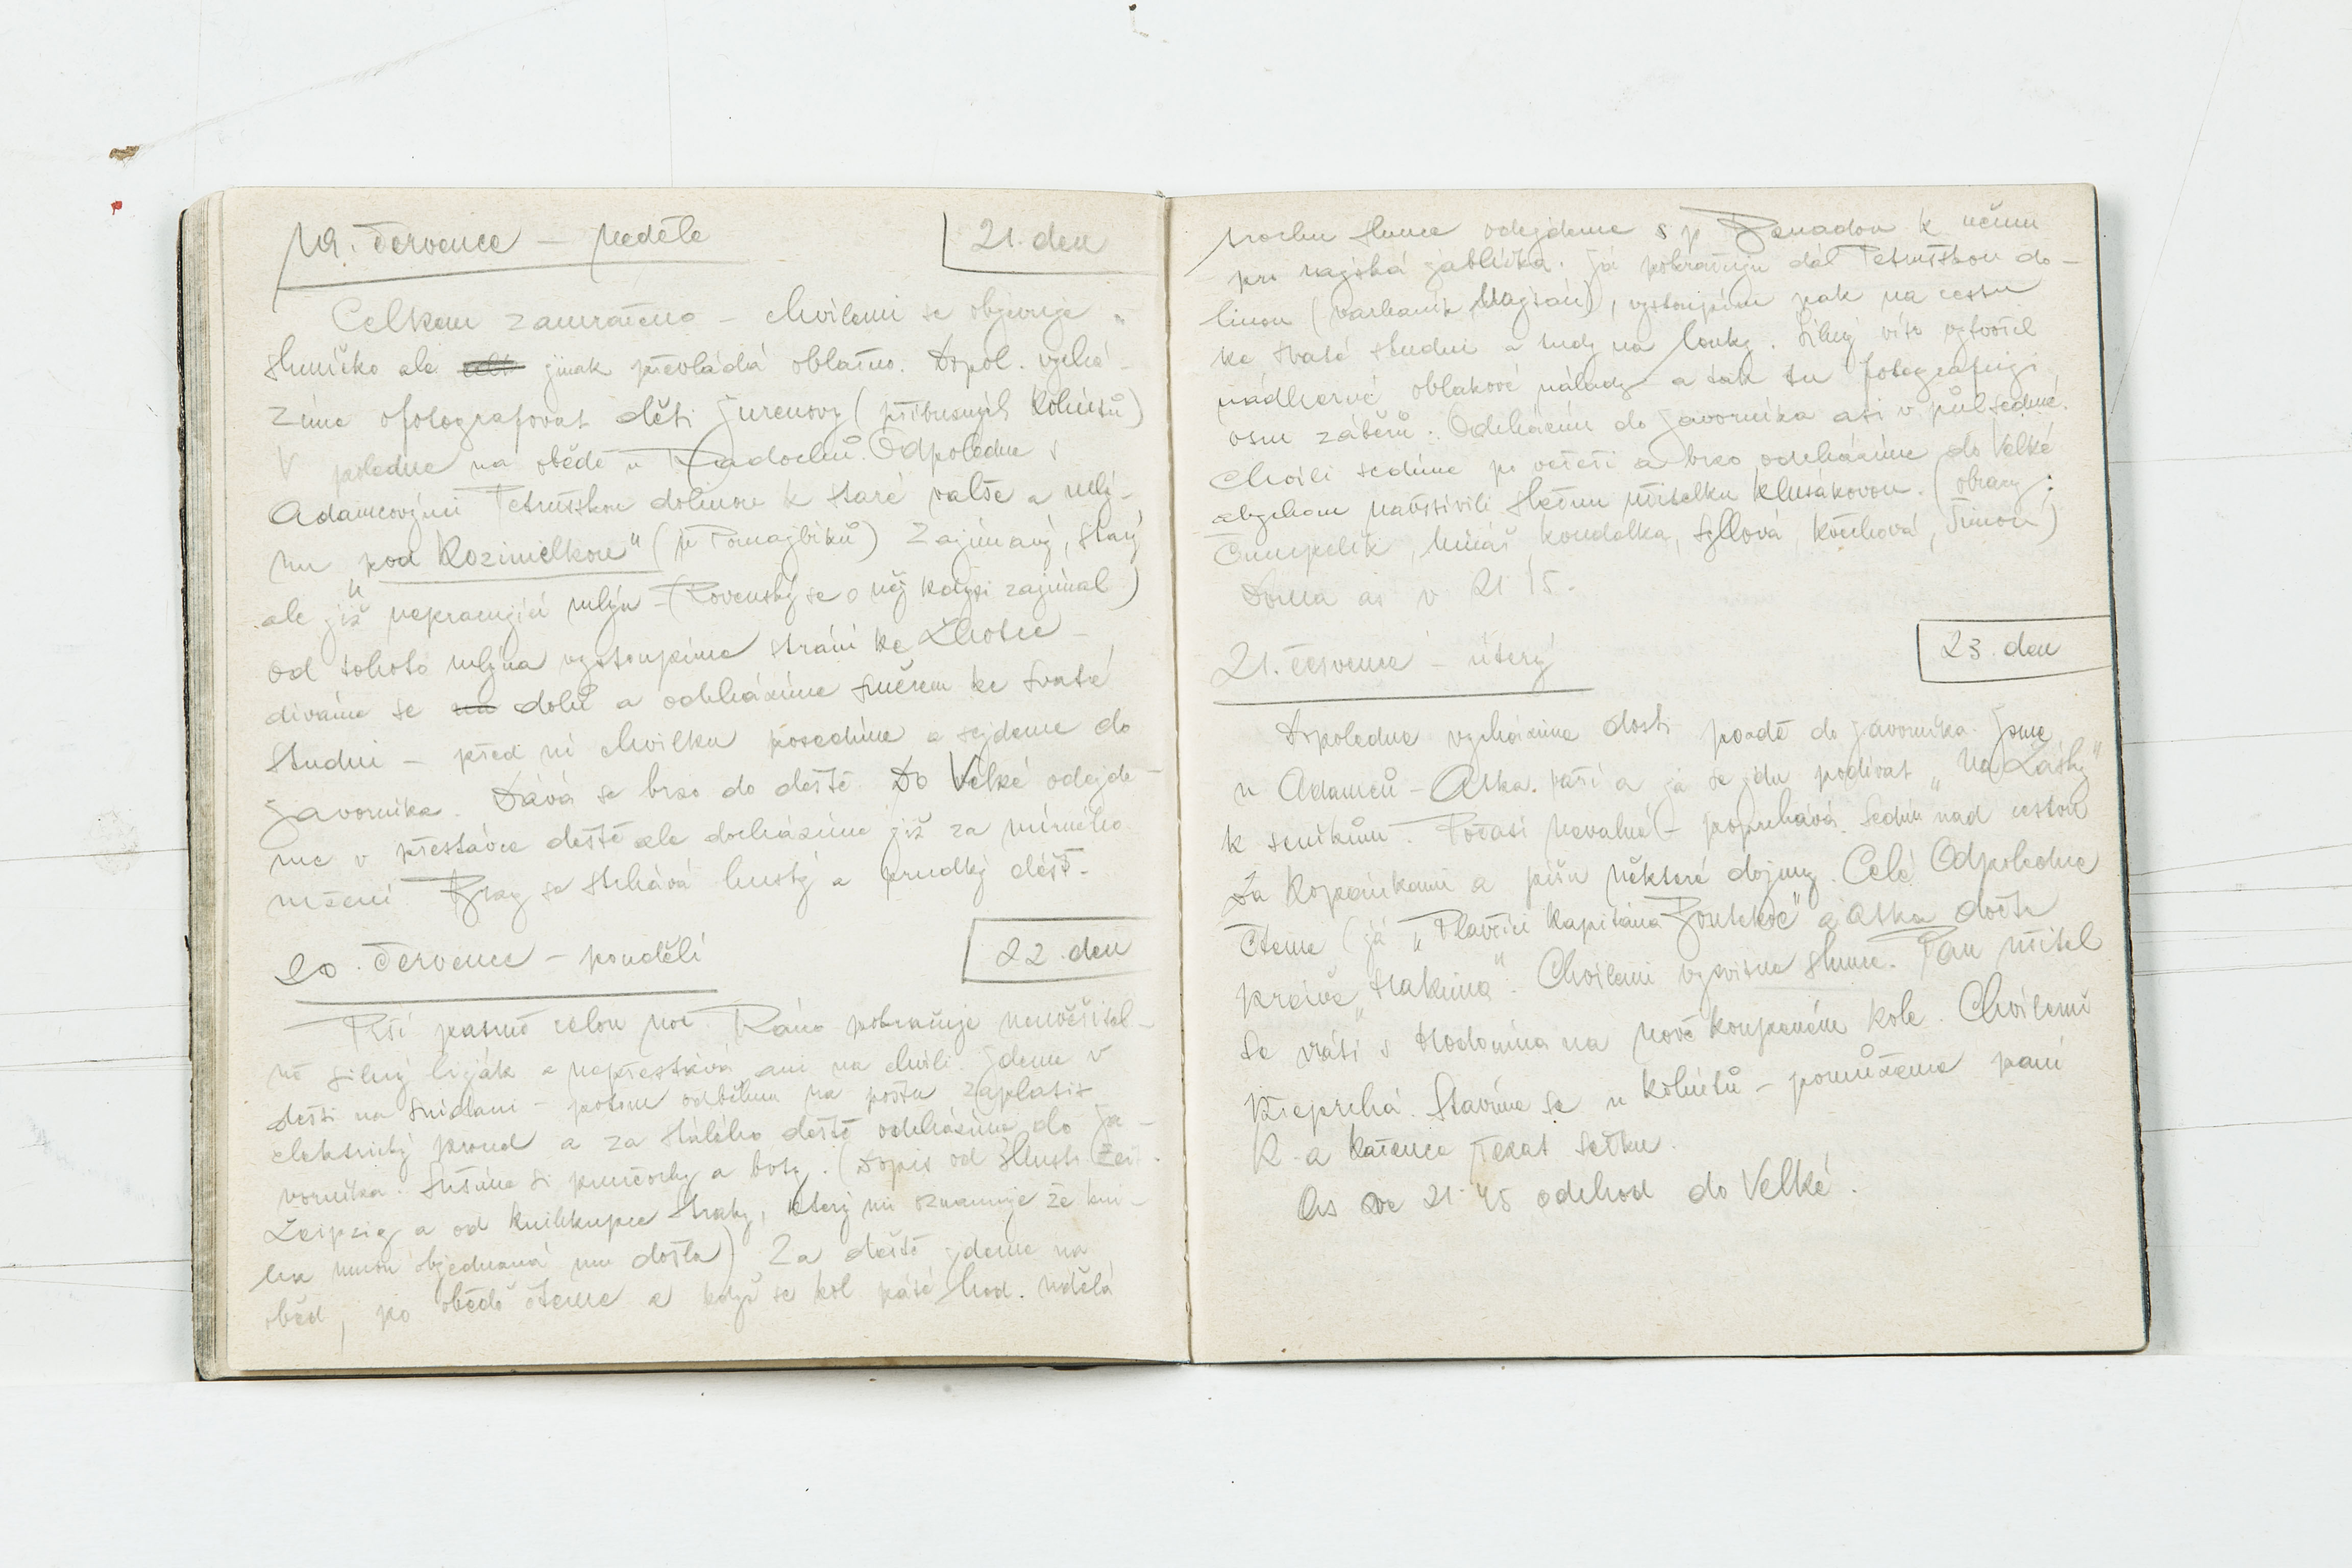 19. července – neděle
21. den
Celkem zamračeno – chvílemi se objevuje
sluníčko ale jinak převládá oblačno. Dopol. vychá-
zíme ofotografovat děti Jurenovy (příbuzných Kohútů)
V poledne na obědě u Radochů. Odpoledne s
Adamcovými Petruškou dolinou k staré valše a mlý-
nu „pod Kozimelkou" (u Pomajbíků) Zajímavý, starý
ale již nepracující mlýn – (Rovenský se o něj kdysi zajímal)
Od tohoto mlýna vystoupíme strání ke Lhotce –
díváme se na dolů a odcházíme směrem ke Svaté
Studni – před ní chvilku posedíme a sejdeme do
Javorníka. Dává se brzo do deště. Do Velké odejde-
me v přestávce deště ale docházíme již za mírného
mžení. Brzy se strhává hustý a prudký déšť.
20. července – pondělí
22. den
Prší patrně celou noc. Ráno pokračuje neuvěřitel-
ně silný liják a nepřestává ani na chvíli. Jdeme v
dešti na snídani – potom odběhnu na poštu zaplatit
elektrický proud a za stálého deště odcházíme do Ja-
vorníka. Sušíme si punčochy a boty. (Dopis od Illustr. Zeit.
Leipzig a od knihkupce Straky, který mi oznamuje že kni-
ha mnou objednaná mu došla) Za deště jdeme na
oběd, po obědě čteme a když se kol páté hod. udělá
trochu slunce odejdeme s p Benadou k němu
pro rajská jablíčka. Já pokračuji dál Petruškou do-
linou (varhaník Majzán), vystoupím pak na cestu
ke Svaté studni a tudy na louky. Silný vítr vytvořil
nádherné oblakové nálady a tak tu fotografuji
osm záběrů. Odcházím do Javorníka asi v půl sedmé.
Chvíli sedíme po večeři a brzo odcházíme do Velké
abychom navštívili slečnu učitelku Klusákovou. (obrazy:
Čumpelík, Mináš, Koudelka, Gallová, Kočchová, Šimon)
Doma až v 21 15.
21. července – úterý
23. den
Dopoledne vycházíme dosti pozdě do Javorníka. Jsme
u Adamců – Aska vaří a já se jdu podívat „Na Lásky"
k seníkům. Počasí nevalné – poprchává. Sedím nad cestou
Za Kopánkami a píšu některé dojmy. Celé Odpoledne
čteme (já „Plavčíci kapitána Bontekoe" a Aska dočte
právě „Hakima". Chvílemi vysvitne slunce. Pan učitel
se vrátí s Hodonína na nově koupeném kole. Chvílemi
přeprchá. Stavíme se u Kohútů – pomůžeme paní
K. a Kačence řezat sečku.
As ve 21 45 odchod do Velké.